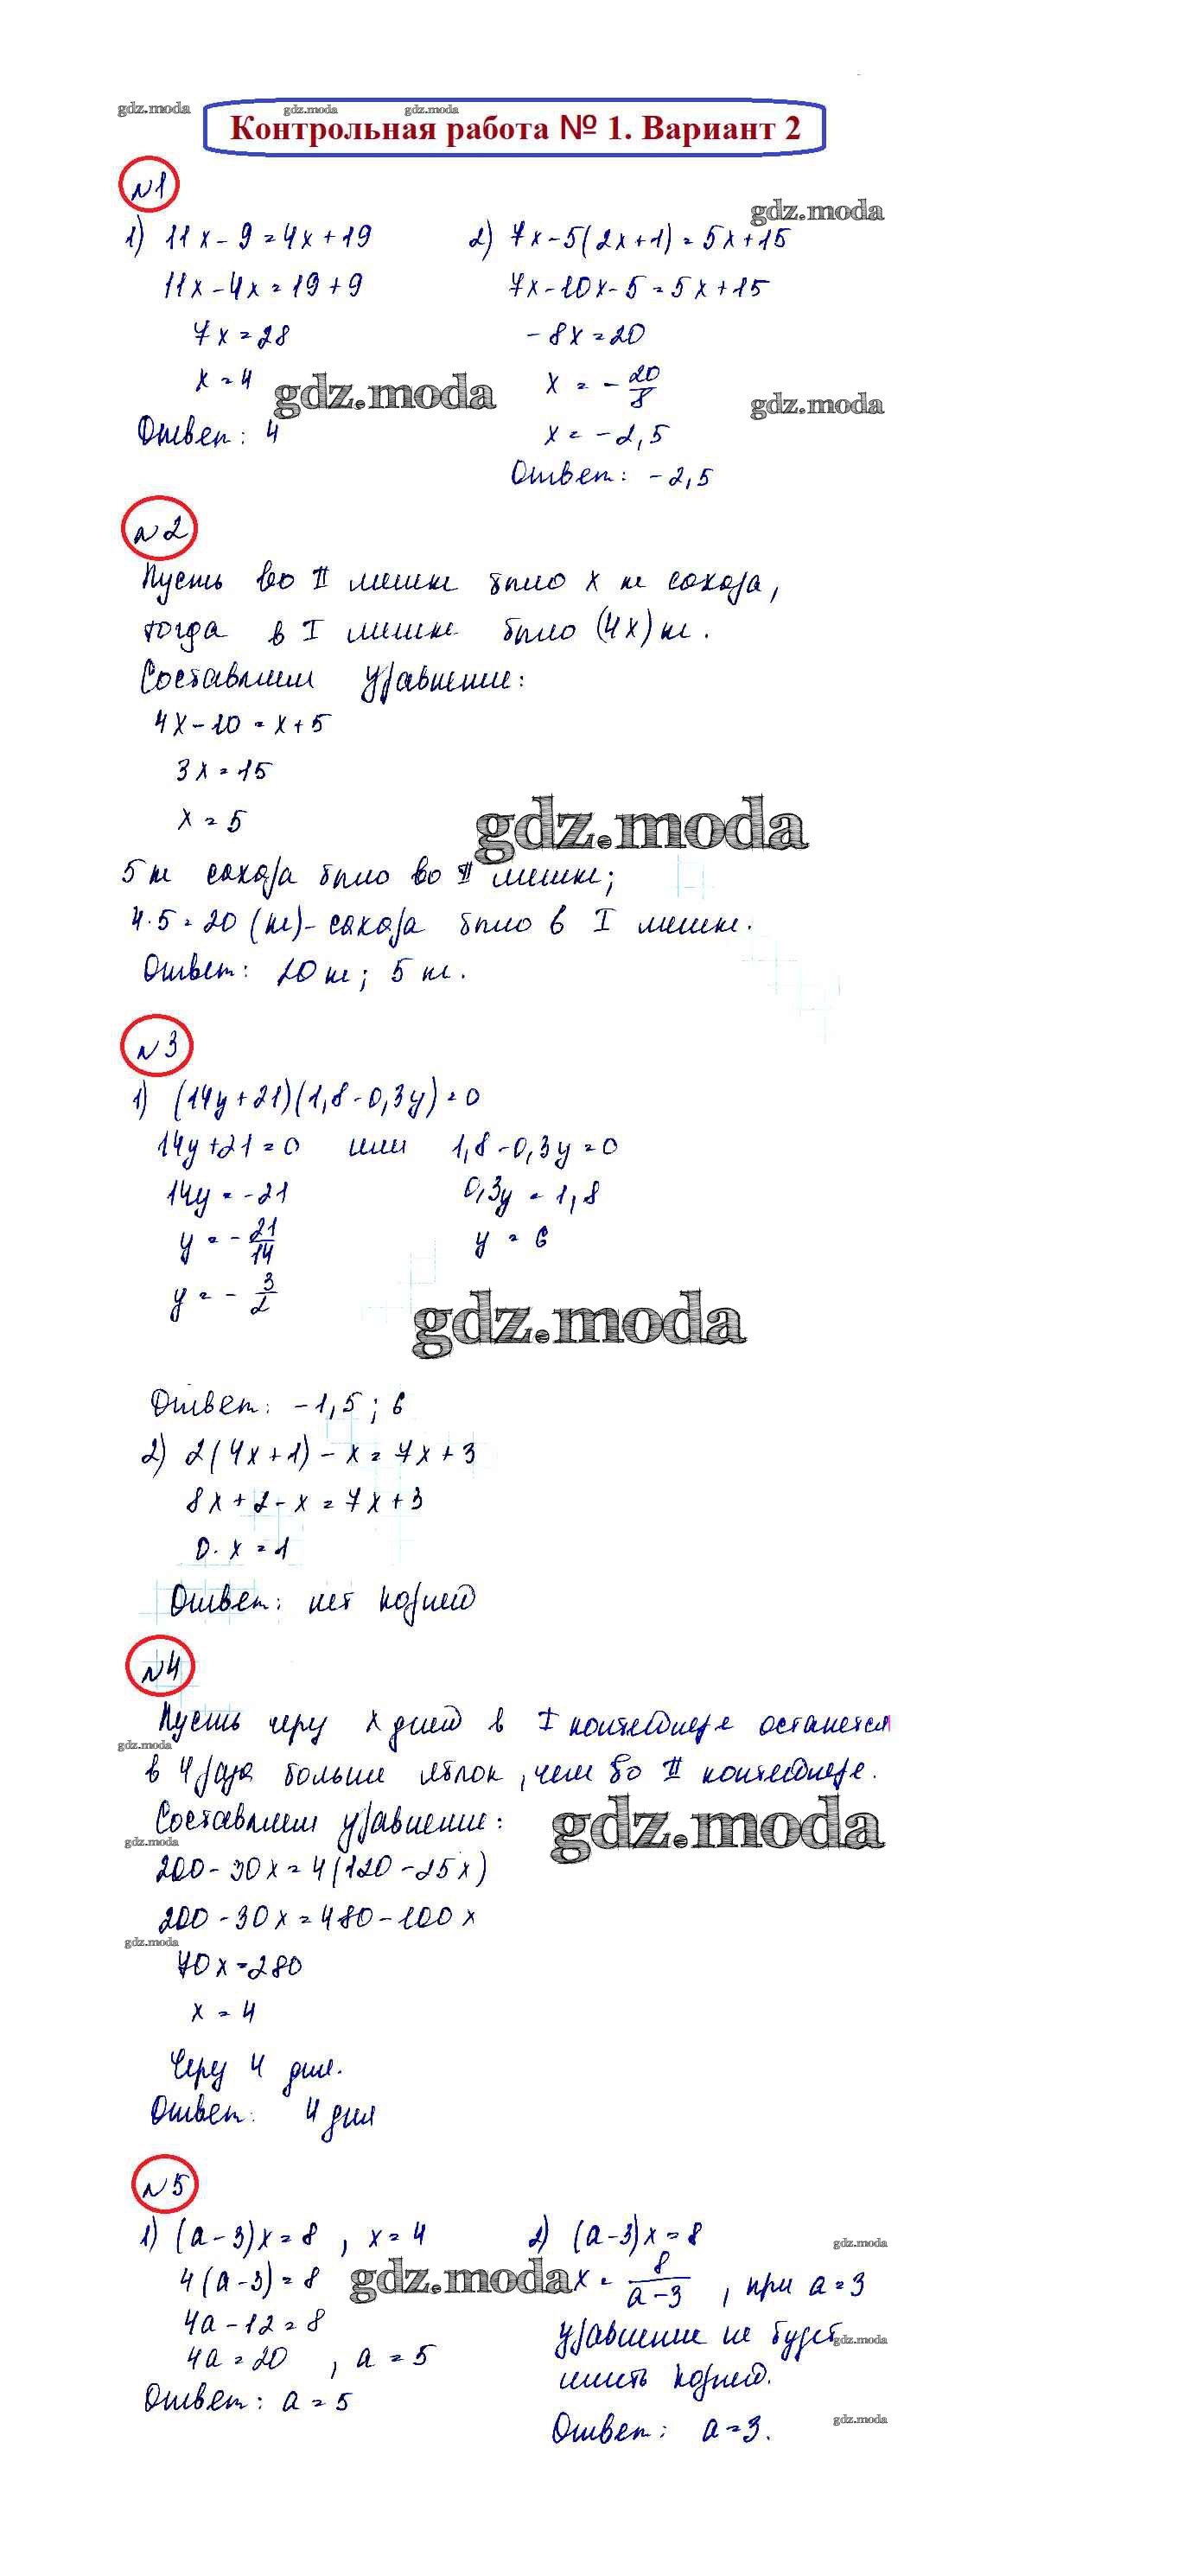 gdz.moda gdz.moda gdz.moda
Контрольная работа № 1. Вариант 2
№1
gdz.moda
1) 11x - 9 = 4x + 19
11x - 4x = 19 + 9
7x = 28
x = 4
gdz.moda
Ответ: 4
2) 7x - 5(2x + 1) = 5x + 15
7x - 10x - 5 = 5x + 15
-8x = 20
x = - 20/8
gdz.moda
x = -2,5
Ответ: -2,5
№2
Пусть во II мешке было x кг сахара,
тогда в I мешке было (4x) кг.
Составим уравнение:
4x - 10 = x + 5
3x = 15
x = 5
gdz.moda
5 кг сахара было во II мешке;
4·5 = 20 (кг) - сахара было в I мешке.
Ответ: 20 кг; 5 кг.
№3
1) (14y + 21)(1,8 - 0,3y) = 0
14y + 21 = 0 или 1,8 - 0,3y = 0
14y = -21 0,3y = 1,8
y = - 21/14 y = 6
y = - 3/2
gdz.moda
Ответ: -1,5; 6
2) 2(4x + 1) - x = 7x + 3
8x + 2 - x = 7x + 3
0·x = 1
Ответ: нет корней
№4
Пусть через x дней в I контейнере останется
gdz.moda
в 4 раза больше яблок, чем во II контейнере.
Составим уравнение:
gdz.moda
gdz.moda
200 - 30x = 4(120 - 25x)
200 - 30x = 480 - 100x
gdz.moda
70x = 280
x = 4
Через 4 дня.
Ответ: 4 дня
№5
1) (a - 3)x = 8, x = 4
4(a - 3) = 8
gdz.moda
4a - 12 = 8
4a = 20, a = 5
Ответ: a = 5
2) (a - 3)x = 8
gdz.moda
x = 8/(a - 3), при a = 3
уравнение не будет
gdz.moda
иметь корней.
gdz.moda
Ответ: a = 3.